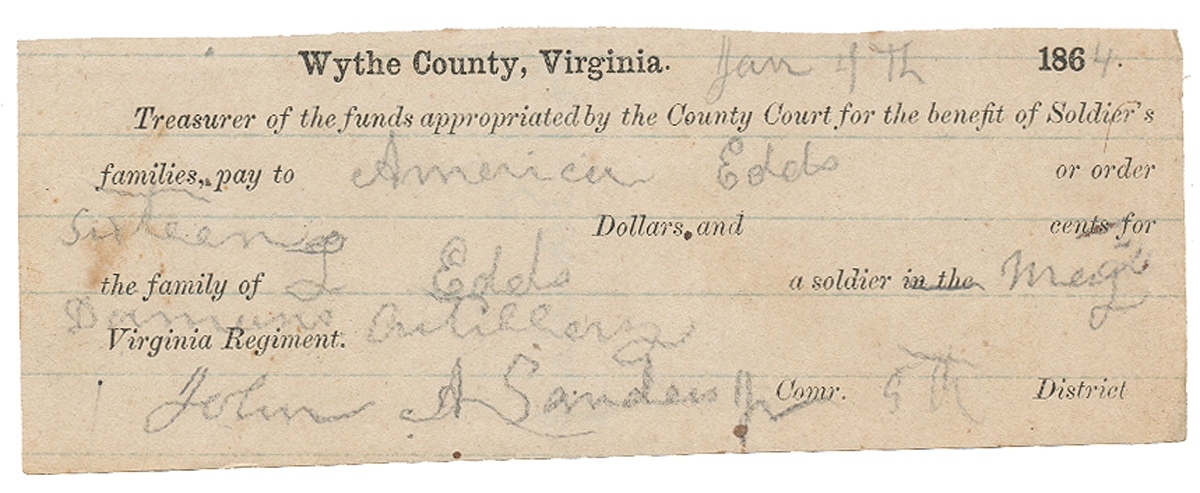 Wythe County, Virginia. Jan 4th 1864.
Treasurer of the funds appropriated by the County Court for the benefit of Soldier's
families, pay to America Edds or order
Sixteen Dollars, and cents for
the family of I Edds a soldier in the
Virginia Regiment. Artillery
John A Sanders Jr Comr. 5th District